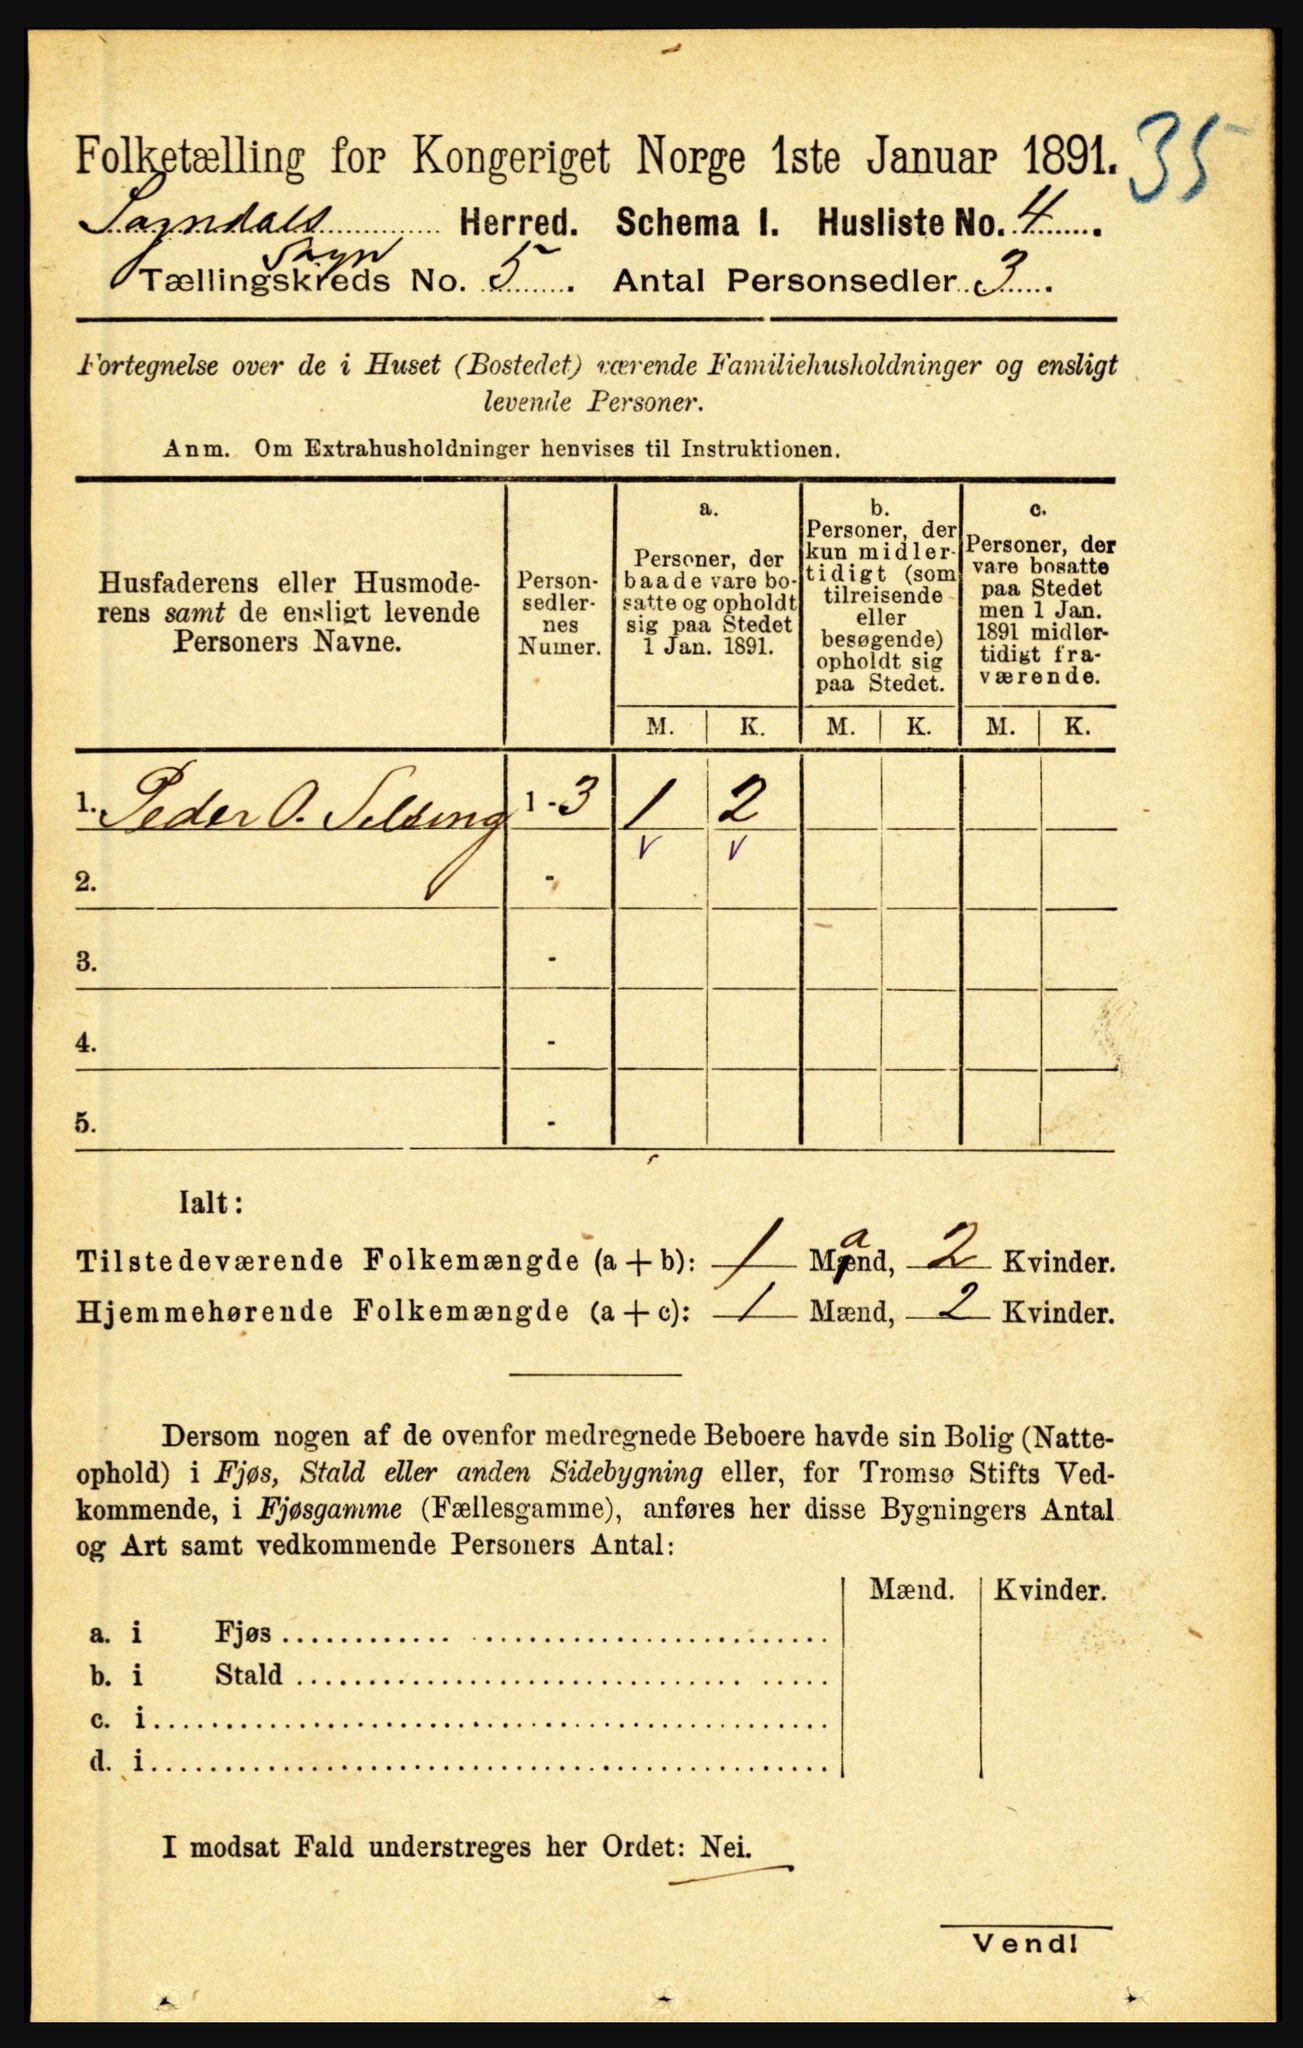 35
Folketælling for Kongeriget Norge 1ste Januar 1891.
Herred. Schema I. Husliste No. 4
Sogn
Tællingskreds No. 5. Antal Personsedler 3.
Fortegnelse over de i Huset (Bostedet) værende Familiehusholdninger og ensligt
levende Personer.
Anm. Om Extrahusholdninger henvises til Instruktionen.
Husfaderens eller Husmode-
rens samt de ensligt levende
Personers Navne.
Person-
sedler-
nes
Numer.
a.
Personer, der
baade vare bo-
satte og opholdt
sig paa Stedet
1 Jan. 1891.
b.
Personer, der
kun midler-
tidigt (som
tilreisende
eller
besøgende)
opholdt sig
paa Stedet.
c.
Personer, der
vare bosatte
paa Stedet
men 1 Jan.
1891 midler-
tidigt fra-
værende.
M. K. M. K. M. K.
1. Peder O. Selseng 1 - 3 1 2
v v
2. -
3. -
4. -
5. -
Ialt:
a
Tilstedeværende Folkemængde (a + b): 1 Mænd, 2 Kvinder.
Hjemmehørende Folkemængde (a + c): 1 Mænd, 2 Kvinder.
Dersom nogen af de ovenfor medregnede Beboere havde sin Bolig (Natte-
ophold) i Fjøs, Stald eller anden Sidebygning eller, for Tromsø Stifts Ved-
kommende, i Fjøsgamme (Fællesgamme), anføres her disse Bygningers Antal
og Art samt vedkommende Personers Antal:
Mænd. Kvinder.
a. i Fjøs
b. i Stald
c. i
d. i
I modsat Fald understreges her Ordet: Nei.
Vend!